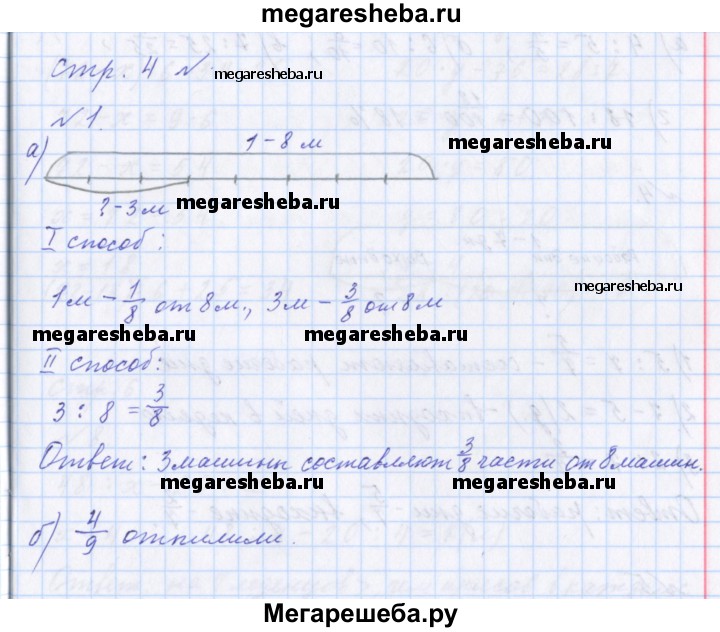 megaresheba.ru
стр. 4 № megaresheba.ru
№ 1.
а) 1 – 8 м megaresheba.ru
? – 3м megaresheba.ru
I способ:
1м – 1/8 от 8м., 3м – 3/8 от 8м
megaresheba.ru megaresheba.ru
II способ:
3 : 8 = 3/8
Ответ: 3 машины составляют 3/8 части от 8 машин.
megaresheba.ru megaresheba.ru
б) 4/9 отпилили.
Мегарешеба.ру